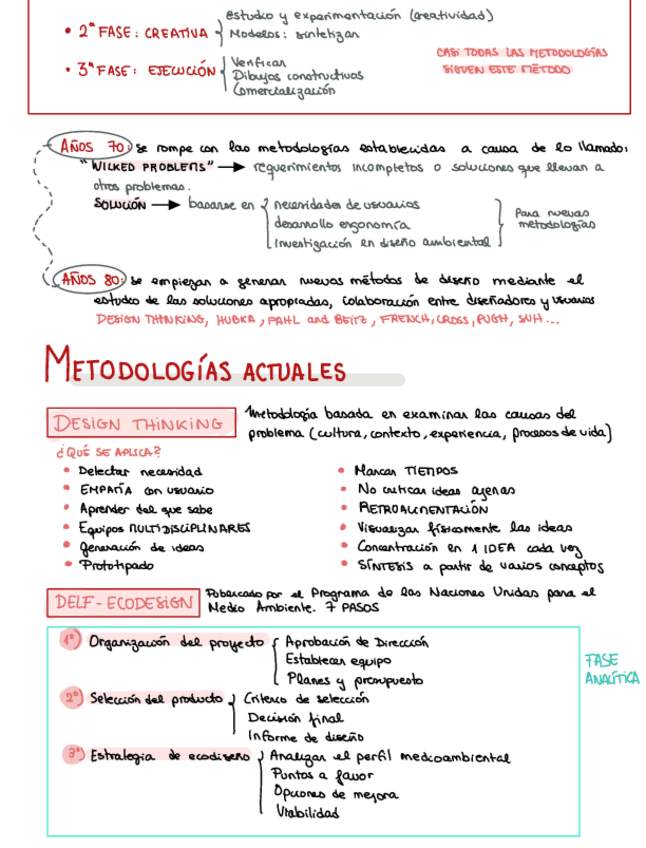 estudio y experimentación (creatividad)
• 2ª FASE: CREATIVA { Modelos: sintetizar
• 3ª FASE: EJECUCIÓN { Verificar
Dibujos constructivos
Comercialización
CASI TODAS LAS METODOLOGÍAS
SIGUEN ESTE MÉTODO
AÑOS 70: se rompe con las metodologías establecidas a causa de lo llamado:
"WILKED PROBLEMS" → requerimientos incompletos o soluciones que llevan a
otros problemas.
SOLUCIÓN → basarse en { necesidades de usuarios
desarrollo ergonomía
investigación en diseño ambiental }
Para nuevas
metodologías
AÑOS 80: se empiezan a generar nuevos métodos de diseño mediante el
estudio de las soluciones apropiadas, colaboración entre diseñadores y usuarios
DESIGN THINKING, HUBKA, PAHL and BEITZ, FRENCH, CROSS, PUGH, SUH...
METODOLOGÍAS ACTUALES
DESIGN THINKING Metodología basada en examinar las causas del
problema (cultura, contexto, experiencia, procesos de vida)
¿QUÉ SE APLICA?
• Detectar necesidad
• EMPATÍA con usuario
• Aprender del que sabe
• Equipos MULTIDISCIPLINARES
• Generación de ideas
• Prototipado
• Marcar TIEMPOS
• No criticar ideas ajenas
• RETROALIMENTACIÓN
• Visualizar físicamente las ideas
• Concentración en 1 IDEA cada vez
• SÍNTESIS a partir de varios conceptos
DELF-ECODESIGN Publicado por el Programa de las Naciones Unidas para el
Medio Ambiente. 7 PASOS
1º) Organización del proyecto { Aprobación de Dirección
Establecer equipo
Planes y presupuesto
2º) Selección del producto { Criterio de selección
Decisión final
Informe de diseño
3º) Estrategia de ecodiseño { Analizar el perfil medioambiental
Puntos a favor
Opciones de mejora
Viabilidad
FASE
ANALÍTICA